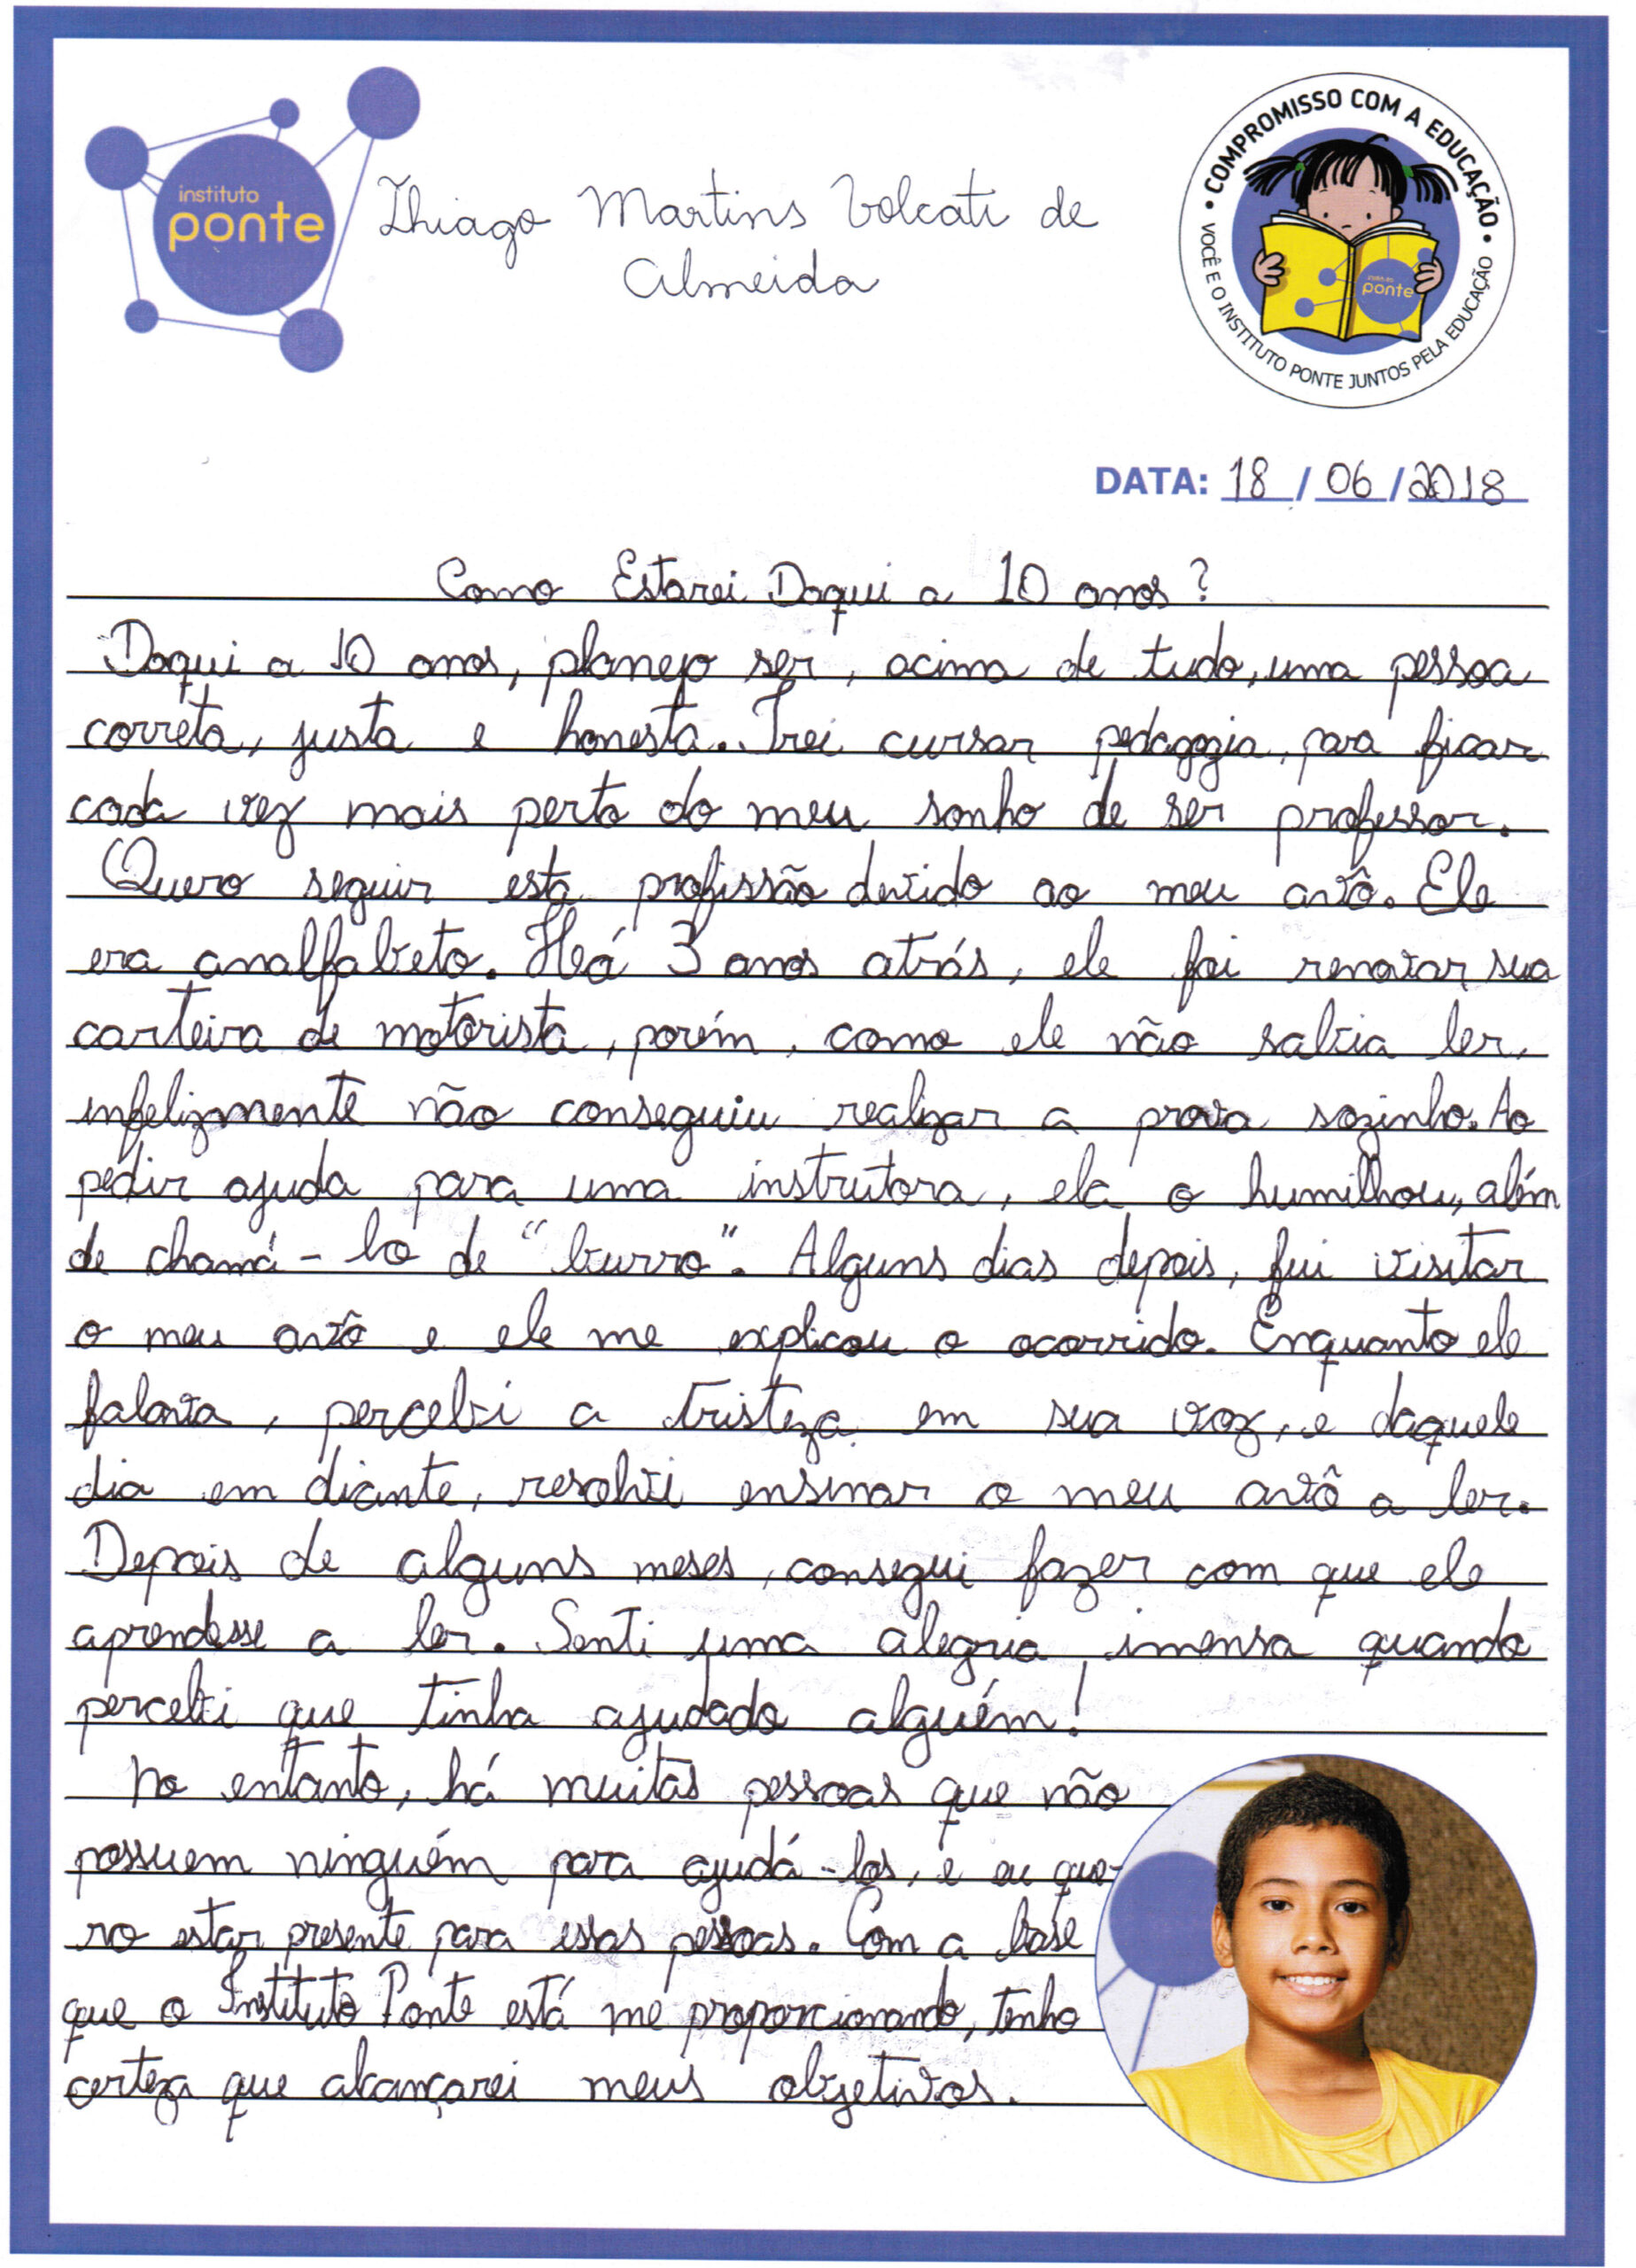 instituto
ponte
Thiago Martins Volcati de
Almeida
• COMPROMISSO COM A EDUCAÇÃO •
VOCÊ E O INSTITUTO PONTE JUNTOS PELA EDUCAÇÃO
ponte
DATA: 18 / 06 / 2018
Como Estarei Daqui a 10 anos?
Daqui a 10 anos, planejo ser, acima de tudo, uma pessoa
correta, justa e honesta. Irei cursar pedagogia, para ficar
cada vez mais perto do meu sonho de ser professor.
Quero seguir esta profissão devido ao meu avô. Ele
era analfabeto. Há 3 anos atrás, ele foi renovar sua
carteira de motorista, porém, como ele não sabia ler,
infelizmente não conseguiu realizar a prova sozinho. Ao
pedir ajuda para uma instrutora, ela o humilhou, além
de chamá-lo de "burro". Alguns dias depois, fui visitar
o meu avô e ele me explicou o ocorrido. Enquanto ele
falava, percebi a tristeza em sua voz, e daquele
dia em diante, resolvi ensinar o meu avô a ler.
Depois de alguns meses, consegui fazer com que ele
aprendesse a ler. Senti uma alegria imensa quando
percebi que tinha ajudado alguém!
No entanto, há muitas pessoas que não
possuem ninguém para ajudá-los, e eu que-
ro estar presente para essas pessoas. Com a base
que o Instituto Ponte está me proporcionando, tenho
certeza que alcançarei meus objetivos.